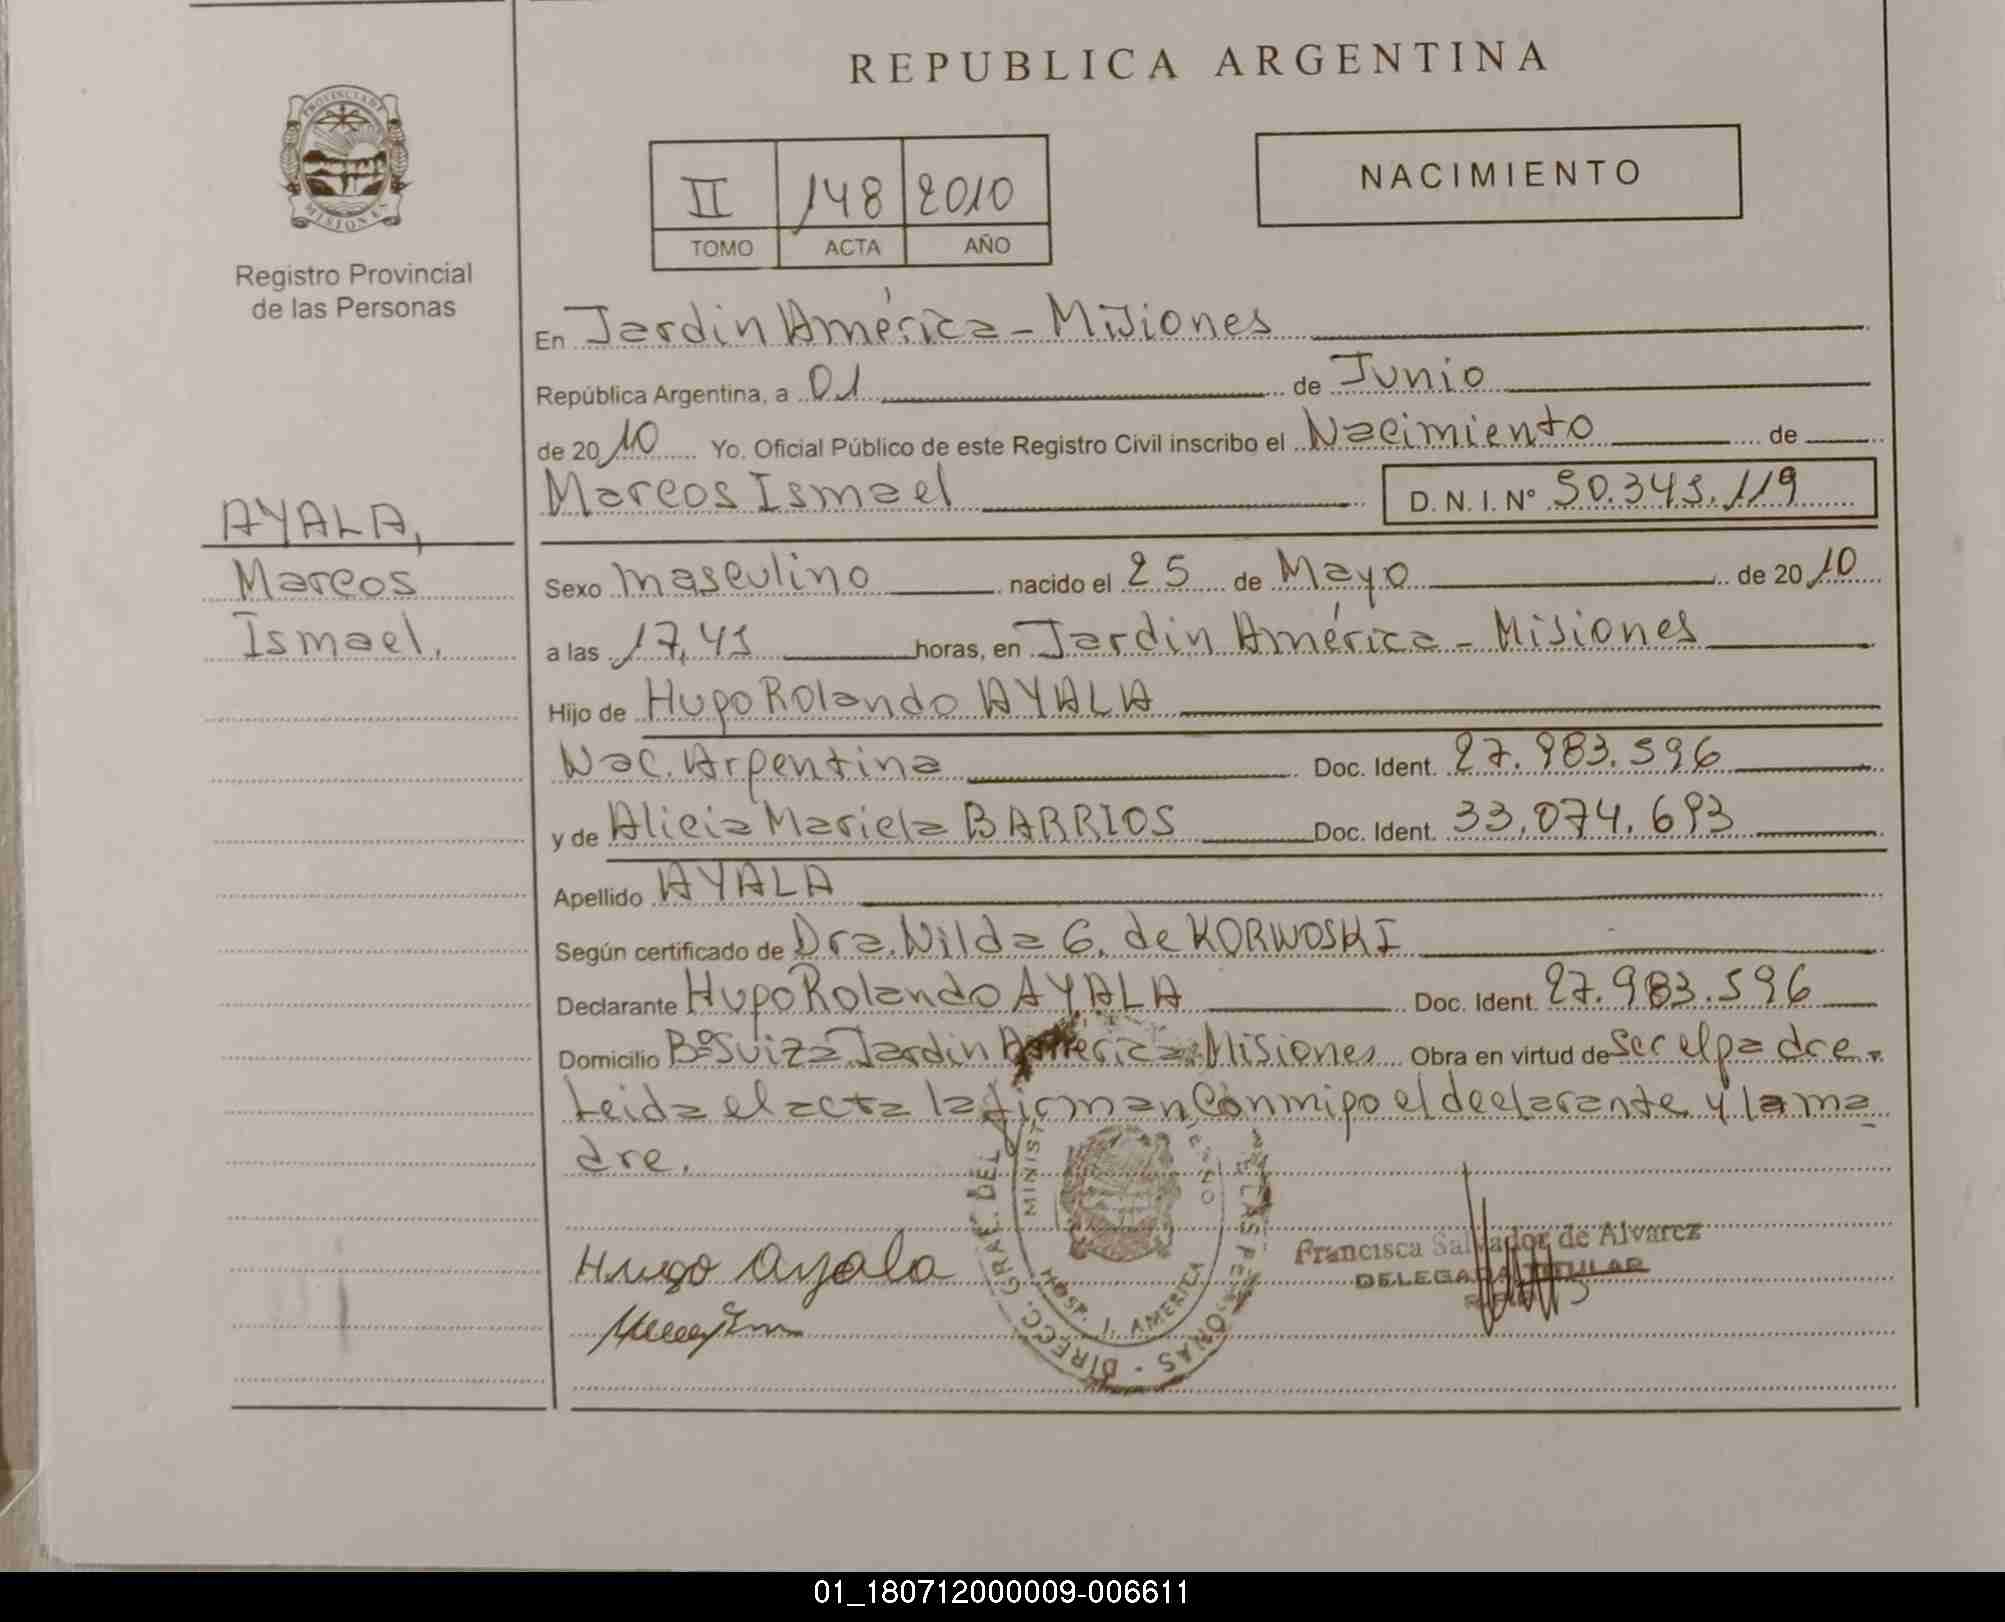 REPUBLICA ARGENTINA
PROVINCIA DE MISIONES
Registro Provincial
de las Personas
NACIMIENTO
II 148 2010
TOMO ACTA AÑO
AYALA,
Marcos
Ismael.
En Jardin América - Misiones
República Argentina, a 01 de Junio
de 2010 Yo. Oficial Público de este Registro Civil inscribo el Nacimiento de
Marcos Ismael D. N. I. N° 50.345.119
Sexo masculino nacido el 25 de Mayo de 2010
a las 17,45 horas, en Jardin América - Misiones
Hijo de Hugo Rolando AYALA
Nac. Argentina Doc. Ident. 27.983.596
y de Alicia Mariela BARRIOS Doc. Ident. 33.074.693
Apellido AYALA
Según certificado de Dra. Nilda G. de KORWOSKI
Declarante Hugo Rolando AYALA Doc. Ident. 27.983.596
Domicilio B° Suiza Jardin América Misiones Obra en virtud de ser el padre.
Leida el acta la firman conmigo el declarante y la ma
dre.
Hugo Ayala
Francisca Salvador de Alvarez
DELEGADA TITULAR
DIRECC. GRAL. DEL LAS PERSONAS
MINIST
HOSP. J. AMERICA
01_180712000009-006611